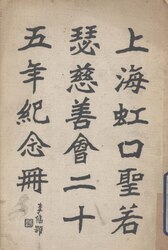 上海虹口聖若
瑟慈善會二十
五年紀念冊